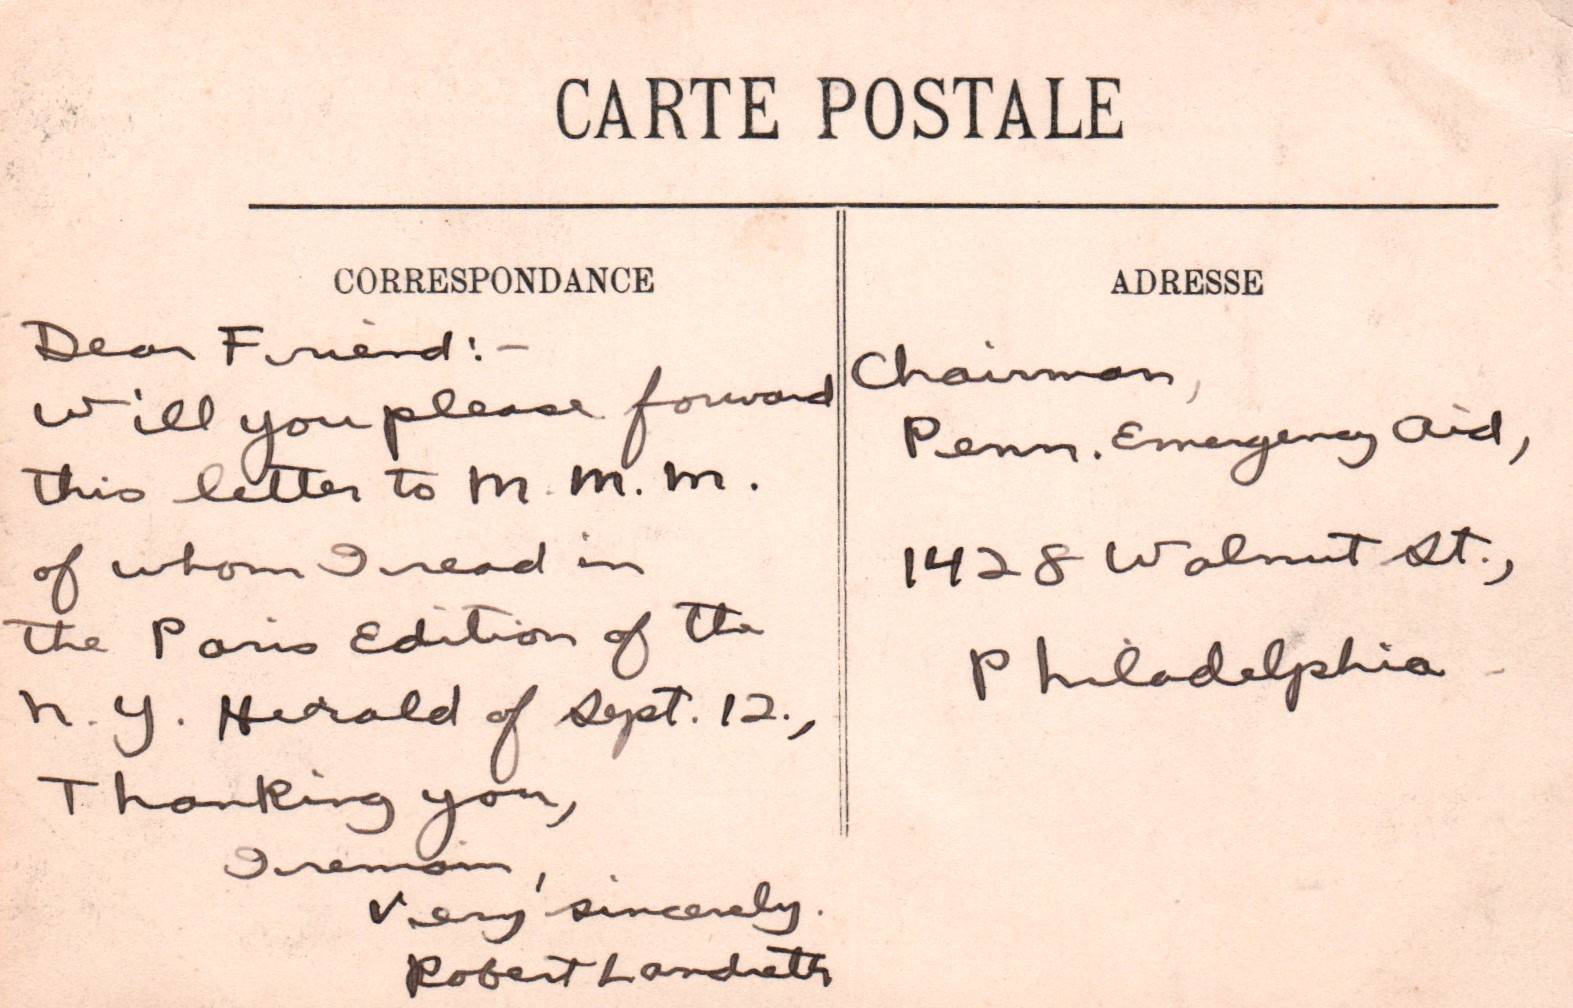 CARTE POSTALE
CORRESPONDANCE
Dear Friend:-
Will you please forward
this letter to M. M. M.
of whom I read in
the Paris Edition of the
N. Y. Herald of Sept. 12.,
Thanking you,
I remain,
Very sincerely.
Robert Landreth
ADRESSE
Chairman,
Penn. Emergency Aid,
1428 Walnut St.,
Philadelphia